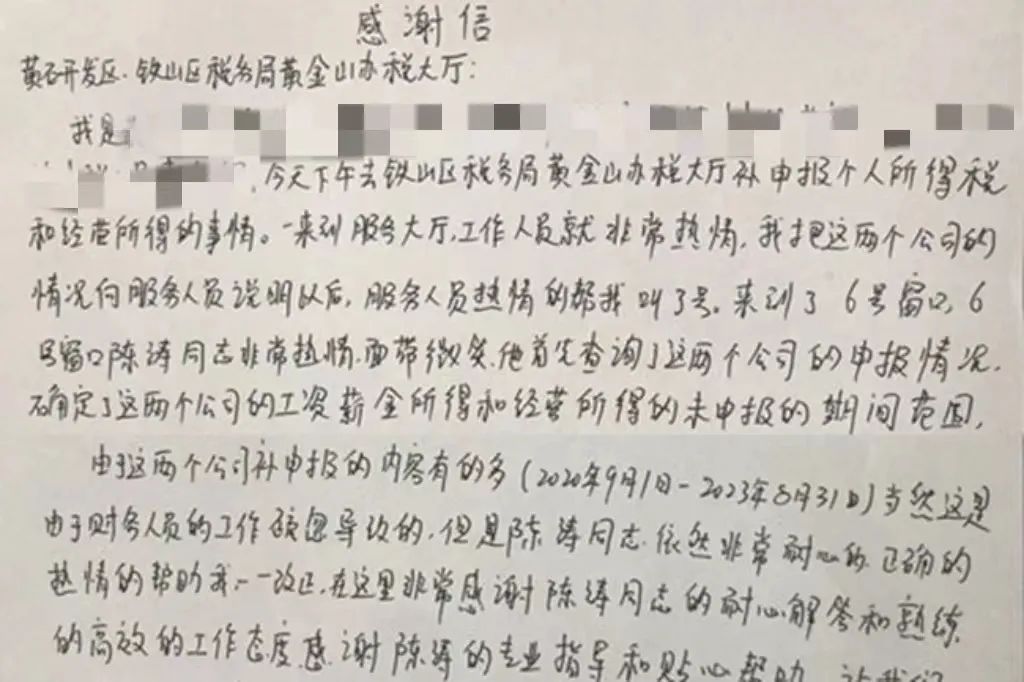 感谢信
黄石开发区·铁山区税务局黄金山办税大厅：
我是
，今天下午去铁山区税务局黄金山办税大厅补申报个人所得税
和经营所得的事情。一来到服务大厅，工作人员就非常热情，我把这两个公司的
情况向服务人员说明以后，服务人员热情的帮我叫了号。来到了6号窗口，6
号窗口陈涛同志非常热情，面带微笑，他首先查询了这两个公司的申报情况，
确定了这两个公司的工资薪金所得和经营所得的未申报的期间范围，
由于这两个公司补申报的内容有的多（2020年9月1日-2023年8月31日）当然这是
由于财务人员的工作疏忽导致的，但是陈涛同志依然非常耐心的正确的
热情的帮助我，一一改正，在这里非常感谢陈涛同志的耐心解答和熟练
的高效的工作态度感谢陈涛的专业指导和贴心帮助